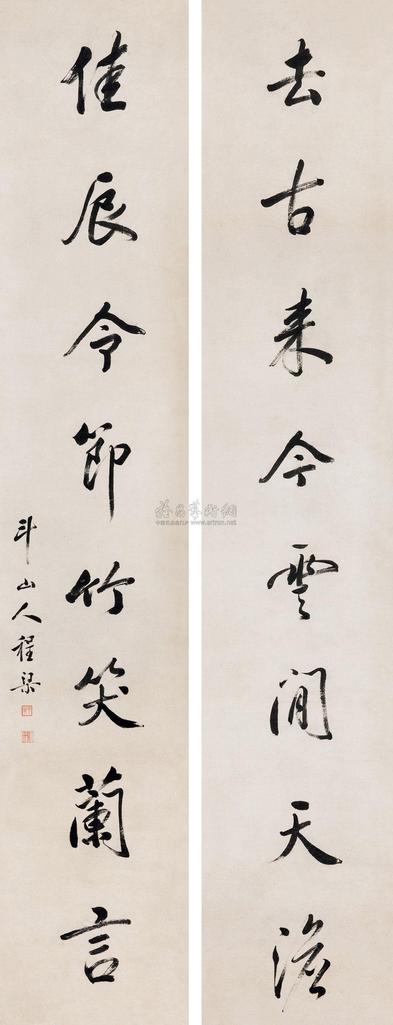 去古来今雲閒天澹
佳辰令節竹笑蘭言
斗山人程梁
www.artron.net